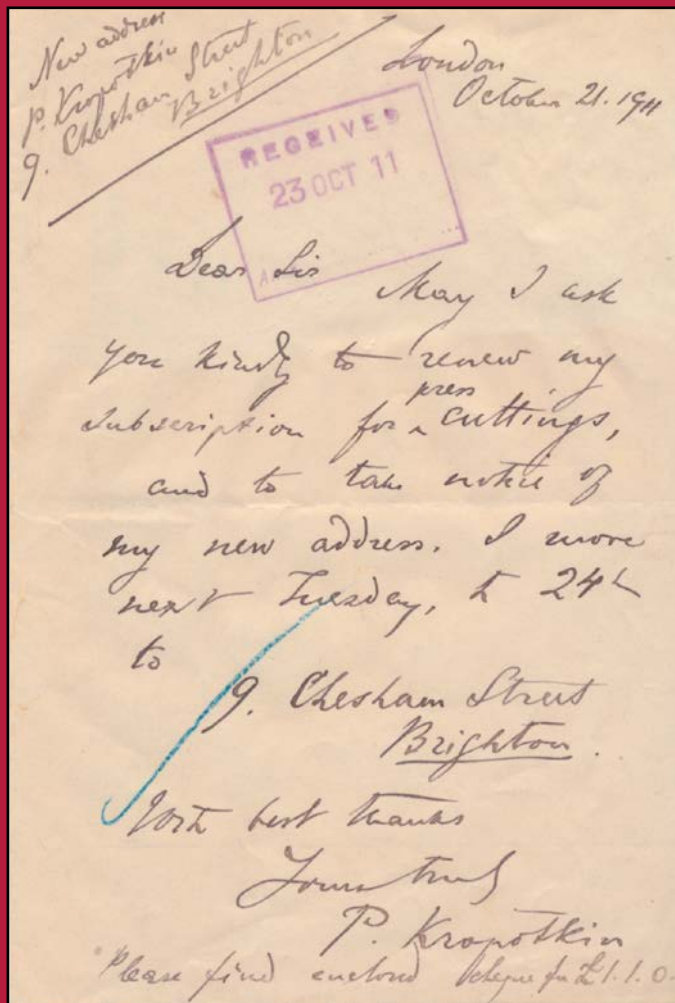 New address
P. Kropotkin
9. Chesham Street
Brighton
London
October 21. 1911
RECEIVED
23 OCT 11
Dear Sir
May I ask
you kindly to renew my
press
subscription for ‸ cuttings,
and to take notice of
my new address. I move
next Tuesday, 24th
to
9. Chesham Street
Brighton.
With best thanks
Yours truly
P. Kropotkin
Please find enclosed cheque for £1.1.0.